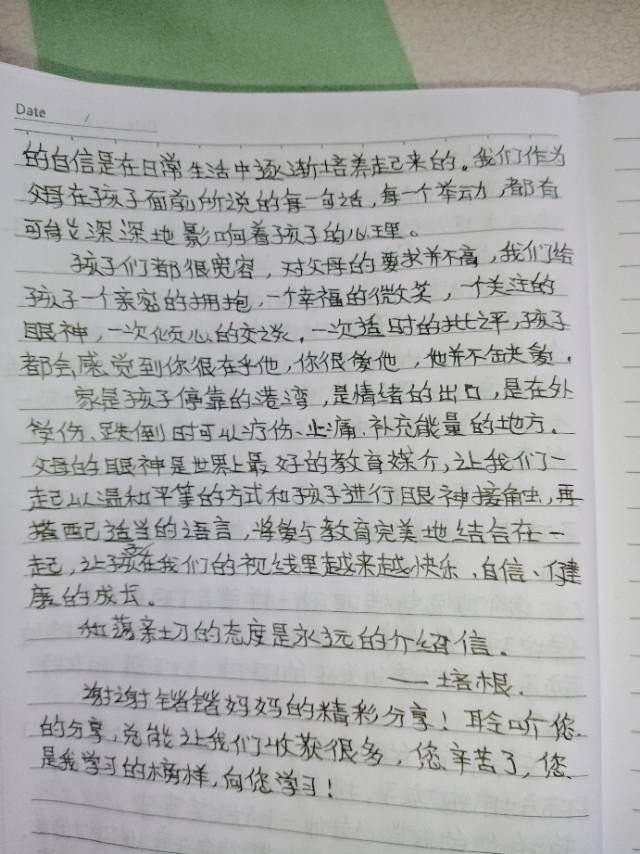 Date /
的自信是在日常生活中逐渐培养起来的。我们作为
父母在孩子面前所说的每一句话,每一个举动,都有
可能深深地影响着孩子的心理。
孩子们都很宽容,对父母的要求并不高,我们给
孩子一个亲密的拥抱,一个幸福的微笑,一个关注的
眼神,一次倾心的交谈,一次适时的批评,孩子
都会感觉到你很在乎他,你很爱他,他并不缺爱。
家是孩子停靠的港湾,是情绪的出口,是在外
受伤、跌倒时可以疗伤、止痛.补充能量的地方。
父母的眼神是世界上最好的教育媒介,让我们一
起以温和平等的方式和孩子进行眼神接触,再
搭配适当的语言,将爱与教育完美地结合在一
起,让孩子在我们的视线里越来越快乐,自信、健
康的成长。
和蔼亲切的态度是永远的介绍信。
——培根.
谢谢锴锴妈妈的精彩分享!聆听您
的分享,总能让我们收获很多,您辛苦了,您
是我学习的榜样,向您学习!